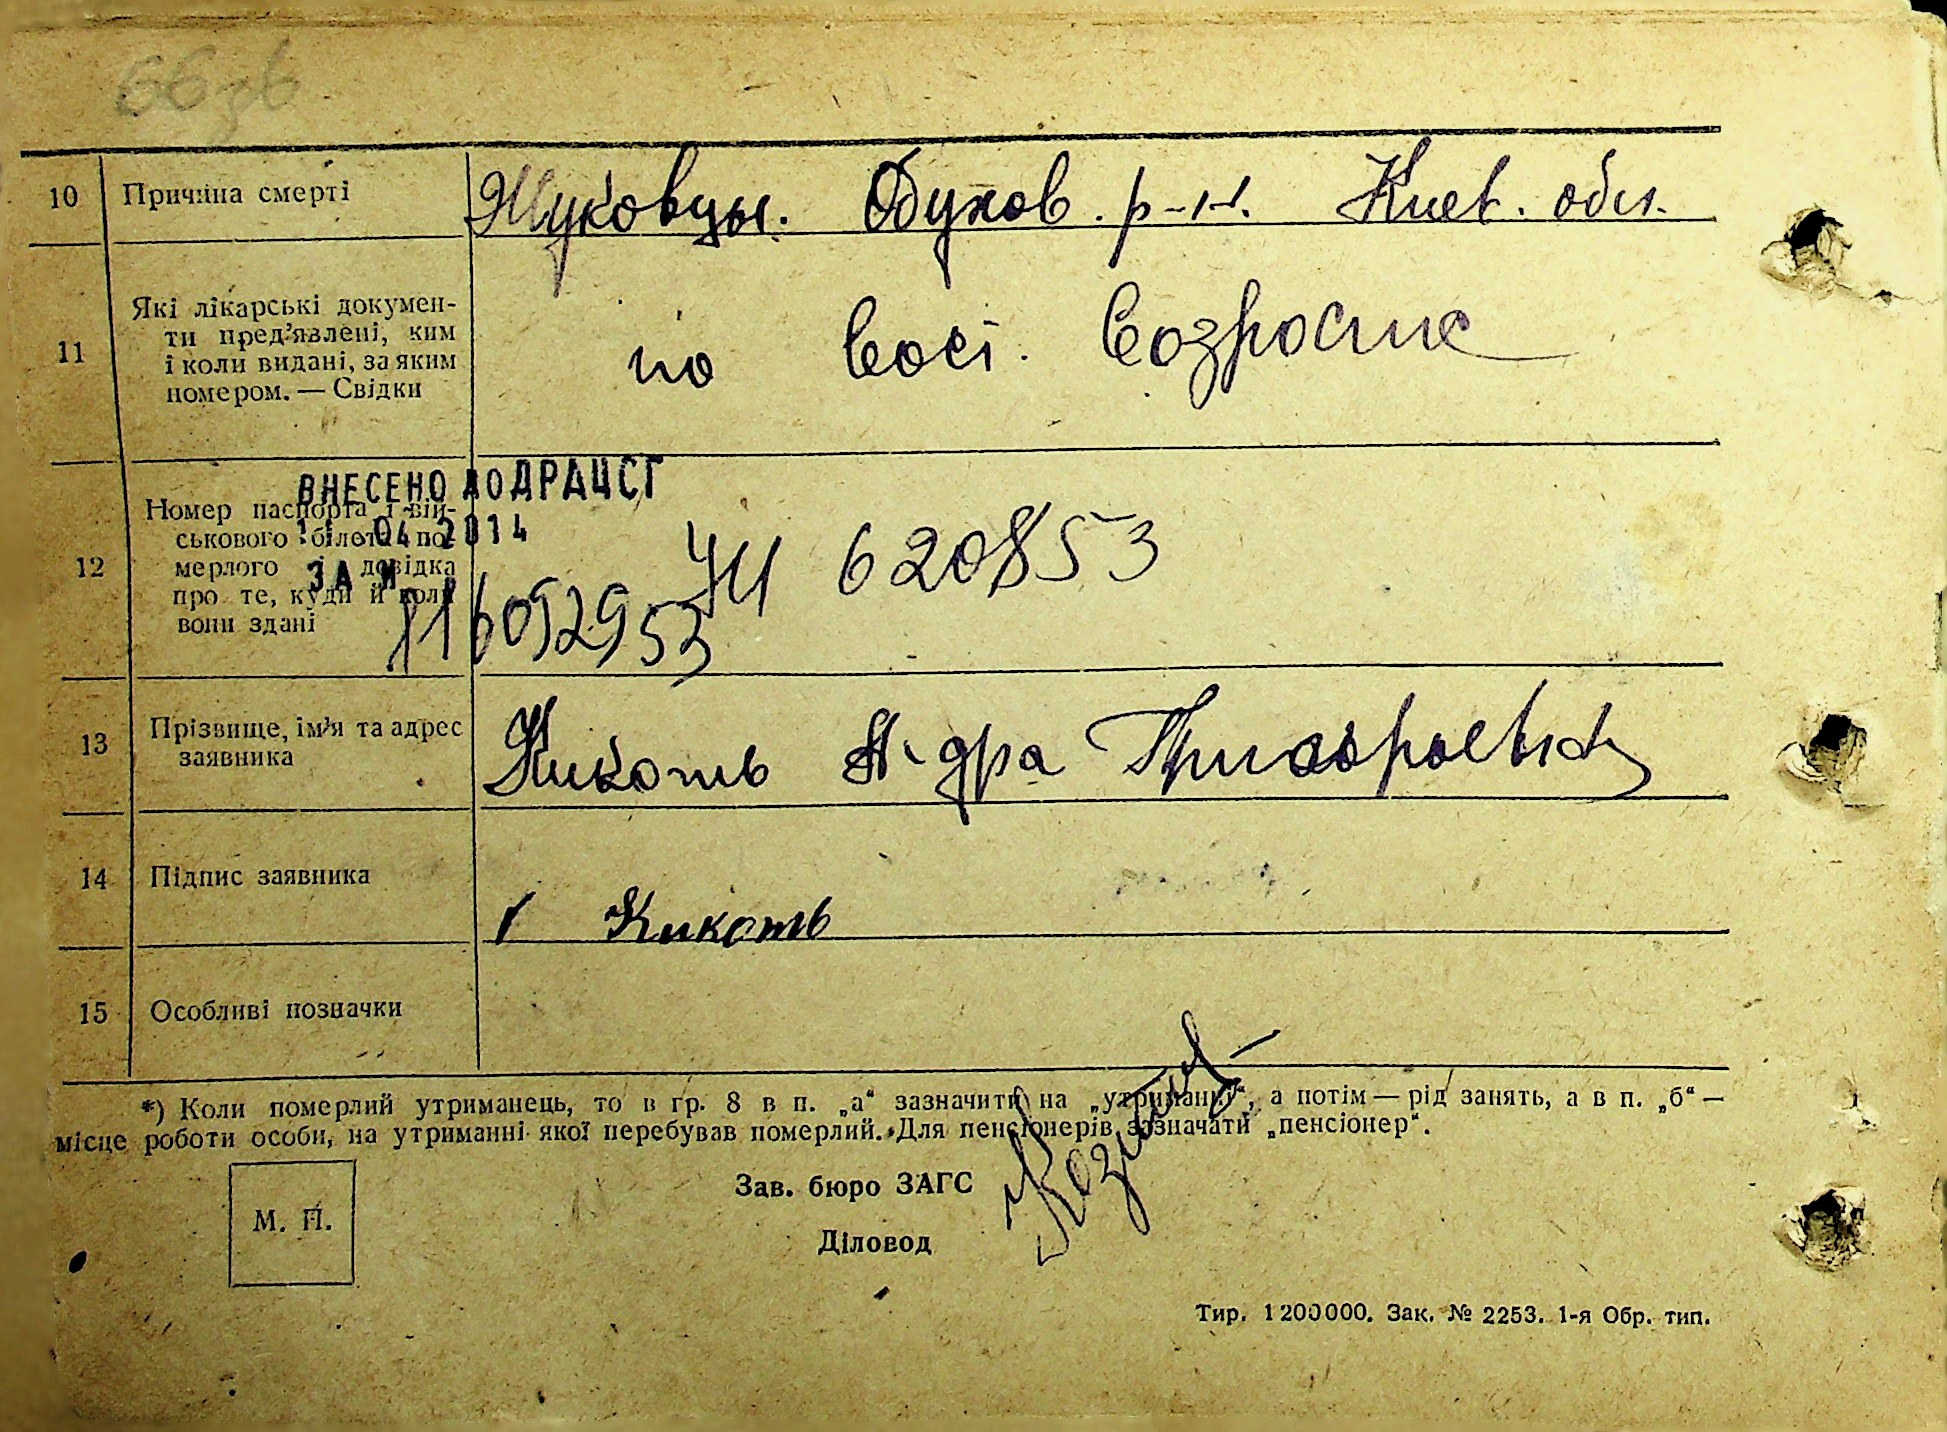 66зв
10 Причина смерті Жуковцы. Обухов. р-н. Киев. обл.
11 Які лікарські докумен-
ти пред'явлені, ким
і коли видані, за яким
номером. — Свідки
по возрасте
ВНЕСЕНО до ДРАЦСГ
04 2014
ЗА №
116092953
12 Номер паспорта і вій-
ського білета по-
мерлого довідка
про те, куди й коли
вони здані
620853
13 Прізвище, ім'я та адрес
заявника
Кикоть Григорьевна
14 Підпис заявника
Кикоть
15 Особливі позначки
*) Коли померлий утриманець, то в гр. 8 в п. „а“ зазначити на „утриманні“, а потім — рід занять, а в п. „б“ —
місце роботи особи, на утриманні якої перебував померлий. Для пенсіонерів зазначати „пенсіонер“.
М. П.
Зав. бюро ЗАГС
Діловод
Тир. 1200000. Зак. № 2253. 1-я Обр. тип.